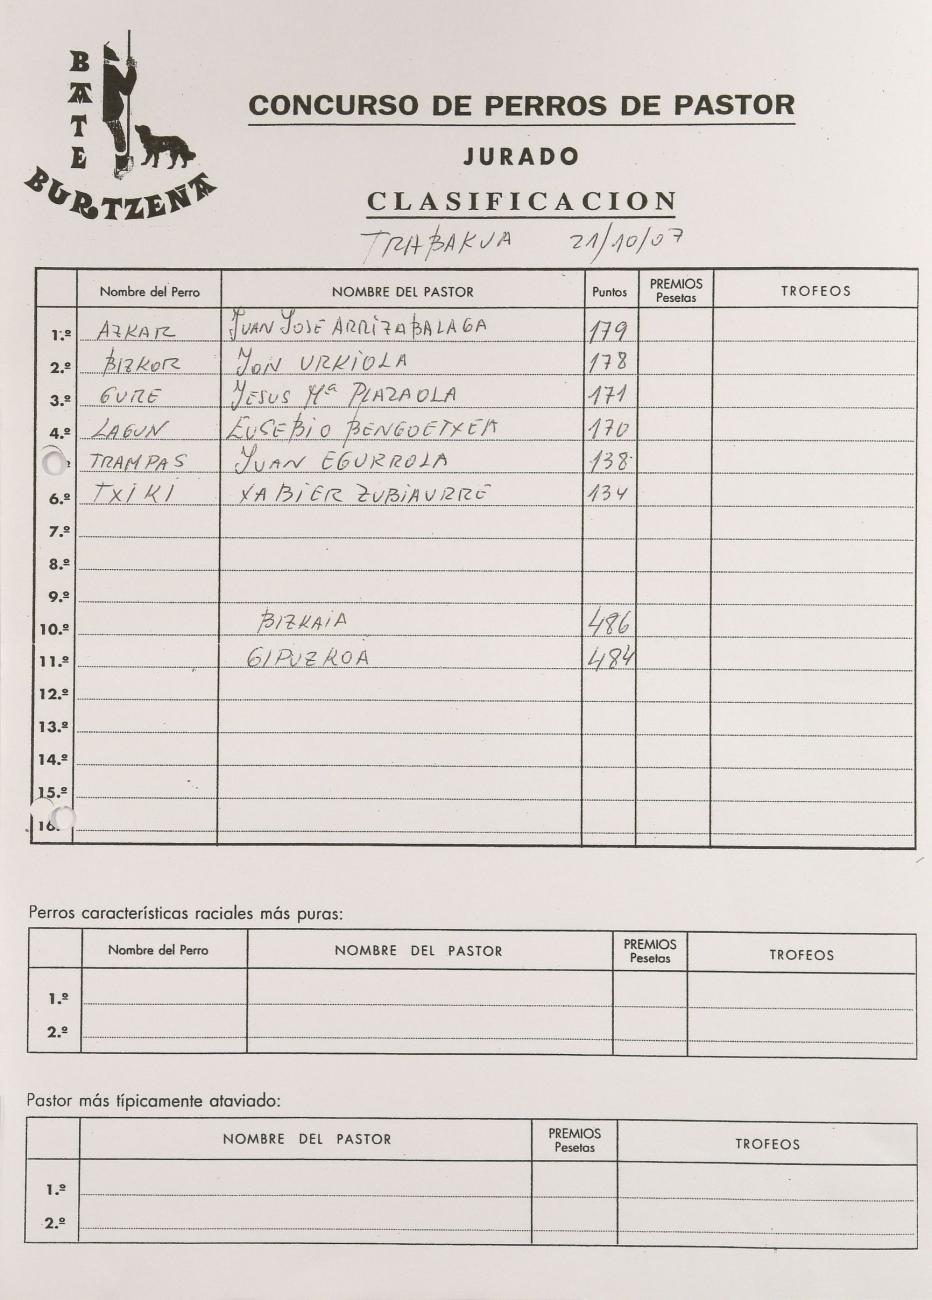 BATE
BURTZEÑA
CONCURSO DE PERROS DE PASTOR
JURADO
CLASIFICACION
TRABAKUA 21/10/07
Nombre del Perro NOMBRE DEL PASTOR Puntos PREMIOS Pesetas TROFEOS
1.º AZKAR JUAN JOSE ARRIZABALAGA 179
2.º BIZKOR JON URKIOLA 178
3.º GURE JESUS Mª PLAZAOLA 171
4.º LAGUN EUSEBIO BENGOETXEA 170
TRAMPAS JUAN EGURROLA 138
6.º TXIKI XABIER ZUBIAURRE 134
7.º
8.º
9.º
10.º BIZKAIA 486
11.º GIPUZKOA 484
12.º
13.º
14.º
15.º
16.
Perros características raciales más puras:
Nombre del Perro NOMBRE DEL PASTOR PREMIOS Pesetas TROFEOS
1.º
2.º
Pastor más típicamente ataviado:
NOMBRE DEL PASTOR PREMIOS Pesetas TROFEOS
1.º
2.º